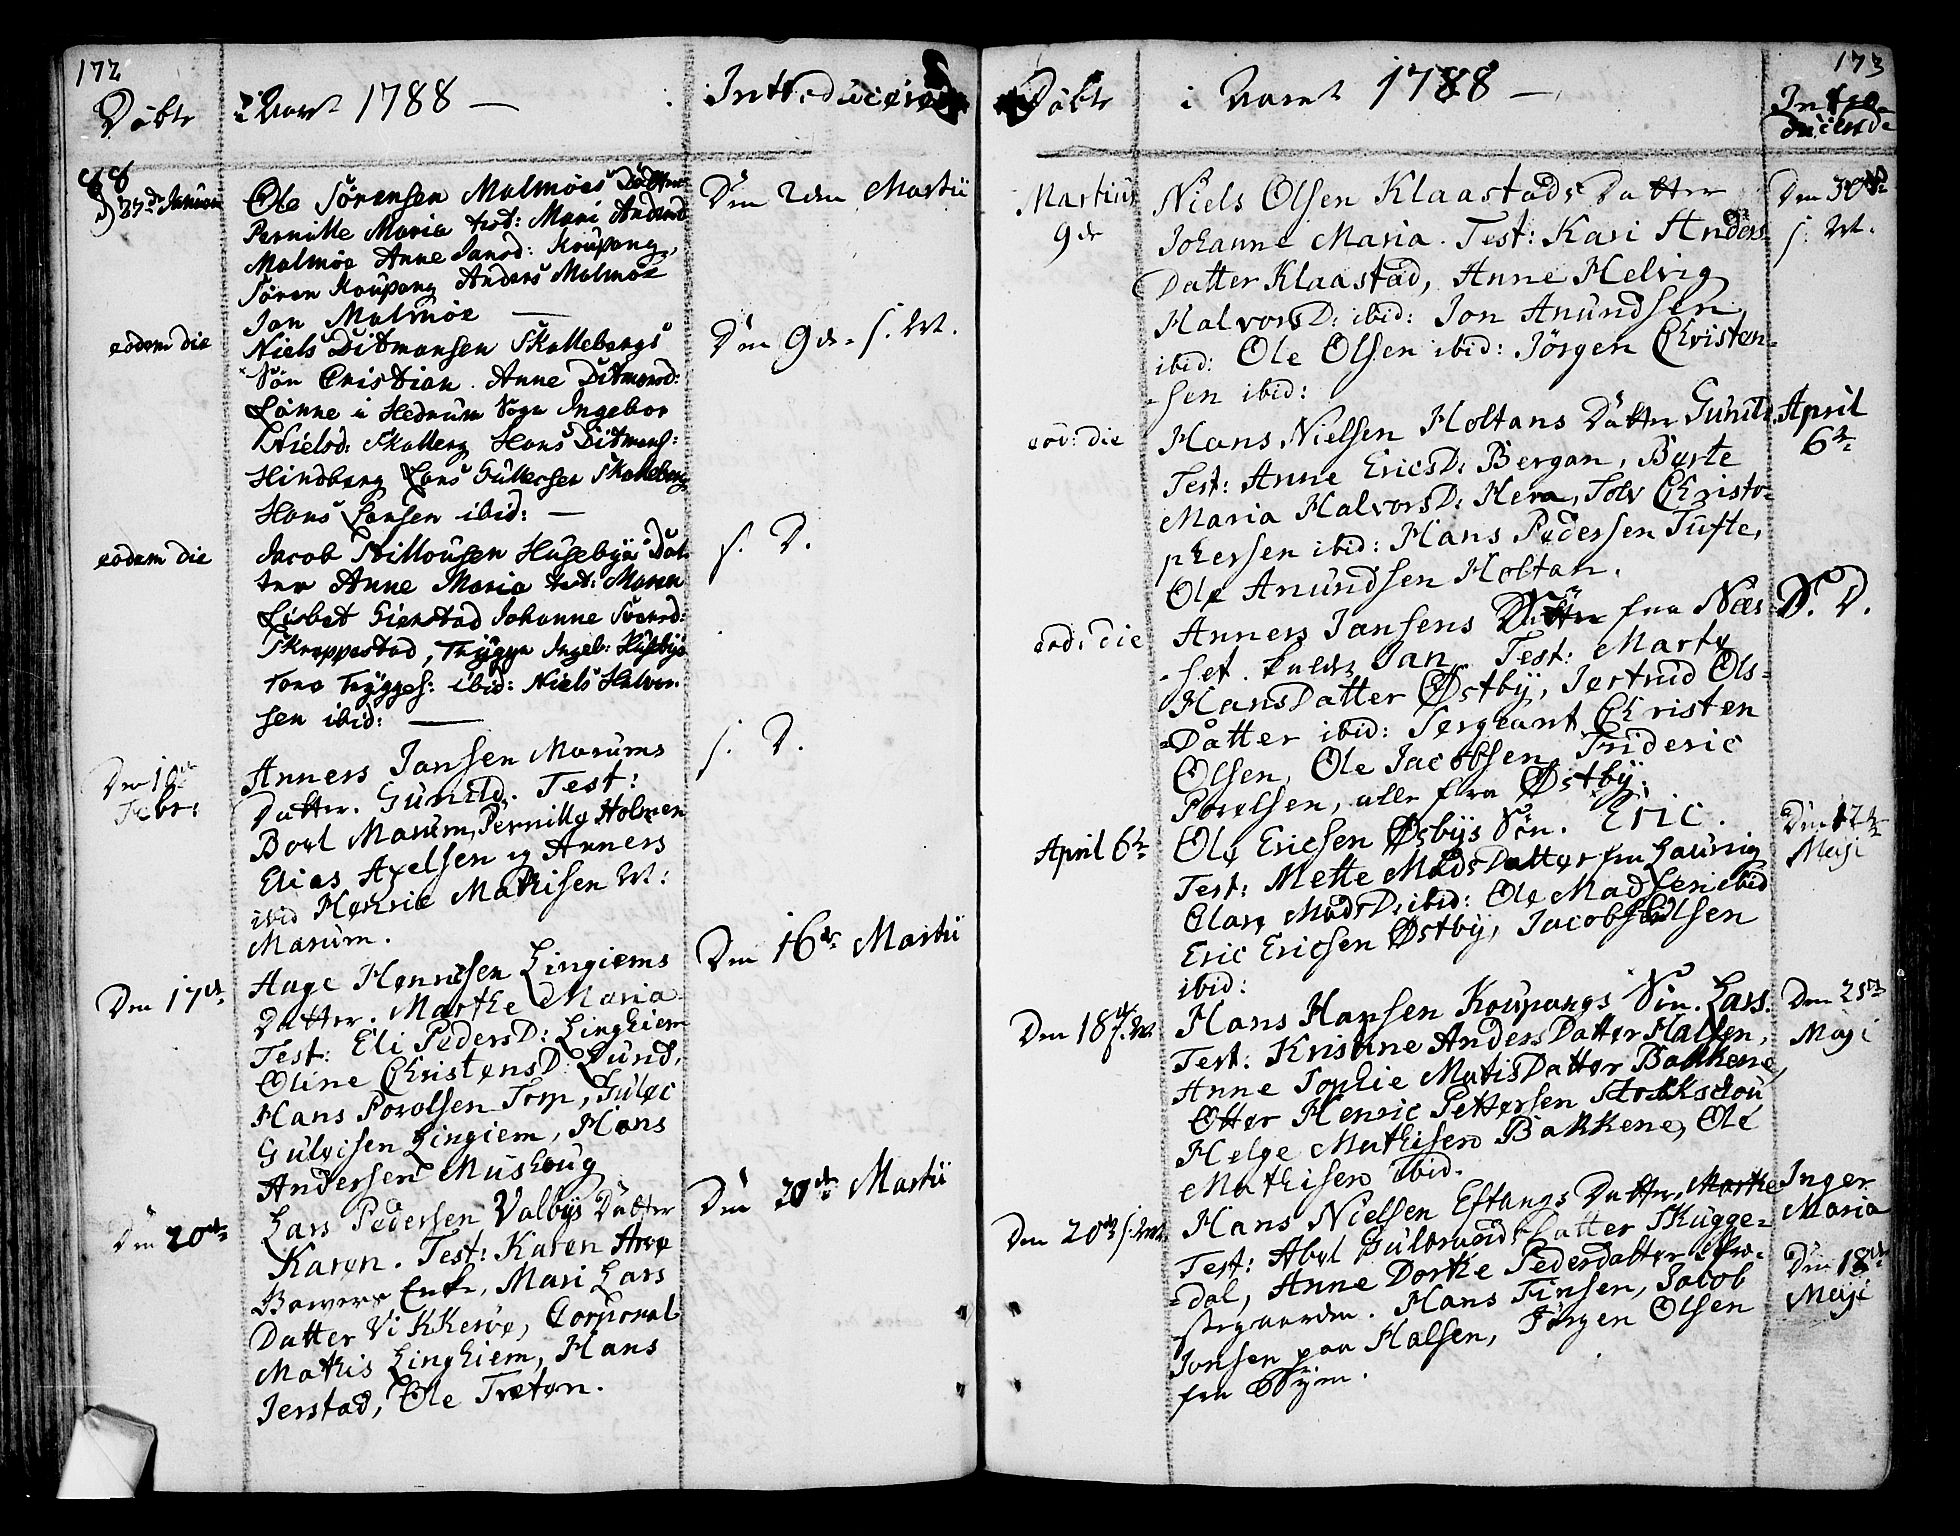 172
Döbte
i Aaret 1788 —
Introducerede
88
D 27de Januari
Ole Sörensen Malmöes Datter
Pernille Maria test: Mari Andersd
Malmöe Anne Jansd: Koupang,
Sören Koupang Anders Malmöe
Jan Malmöe —
Den 2den Martii
eodem die
Niels Ditmansen Skallebergs
Sön Cristian. Anne Ditmarsd:
Lönne i Hedrum Sogn Ingebor
Nielsd: Skalleberg Hans Ditmans:
Hindberg Lars Gullecsen Skalleberg
Hans Larsen ibid: —
Den 9de s. M.
eodem die
Jacob Husebyes Dat-
ter Anne Maria test: Maren
Lisbet Gierstad Johanne Sörensd:
Skreppestad, Trygge Ingeb: Husebye
Tore Trygges: ibid: Niels Halvor-
sen ibid: —
s. D.
Den 10de
Febr:
Anners Jansen Marums
Datter. Gunild. Test:
Boel Marum, Pernille Holmen
Elias Axelsen og Anners
ibid Henric Mathisen M:
Marum.
s. D.
Den 17de
Aage Henricsen Lingiems
Datter. Marthe Maria
Test: Eli PedersD: Linghiem
Oline ChristensD: Lund,
Hans Povolsen Torp, Gulec
Gulecsen Lingiem, Hans
Andersen Mushoug
Den 16de Martii
Den 20de
Lars Pedersen Valbys Datter
Karen. Test: Karen Aroe
Enke, Mari Lars
Datter Vikkeröe, Corporal
Mathis Linghiem, Hans
Jerstad, Ole Tveten.
Den 20de Martii
173
Döbte
i Aaret 1788 —
Intro-
ducerede
Martius
9de
Niels Olsen Klaastads Datter
Johanne Maria. Test: Kari Anders-
Datter Klaastad, Anne Helvig
HalvorsD: ibid: Jon Anundsen
ibid: Ole Olsen ibid: Jörgen Christen-
-sen ibid:
Den 30te
s. M.
eod: die
Hans Nielsen Holtans Datter Gunild
Test: Anne EricsD: Bergan, Berte
Maria HalvorsD: Hera, Solv Christo-
phersen ibid: Hans Pedersen Tufte,
Ole Anundsen Holtan.
April
6te
eod: die
Anners Jansens Sön fra Næs-
-set. kaldet Jan. Test: Marte
HansDatter Østby, Jertrud Ols-
-Datter ibid: Sergeant Christen
Olsen, Ole Jacobsen, Frideric
Povelsen, alle fra Østby.
S. D.
April 6te
Ole Ericsen Østbys Sön. Eric.
Test: Mette MadsDatter fra Laurvig
MadsD: ibid: Ole Madsen ibid
Eric Ericsen Østby, Jacob Olsen
ibid:
Den 12te
Maji
Den 18de s. M.
Hans Hansen Koupangs Sön. Lars.
Test: Kristine AndersDatter Halsen,
Anne Sophie MatisDatter Bakkene,
Otter Henric Pettersen
Helge Mathisen Bakkene, Ole
Mathisen ibid.
Den 25de
Maji
Den 20de s. M.
Hans Nielsen Eftangs Datter, Marthe
Test: Abel GulbrandsDatter Skugge-
-dal, Anne Dorthe Pedersdatter Præ-
stegaarden. Hans Finsen, Jacob
Jonsen paa Halsen, Jörgen Olsen
fra Byen.
Inger
Maria
Den 18de
Maji